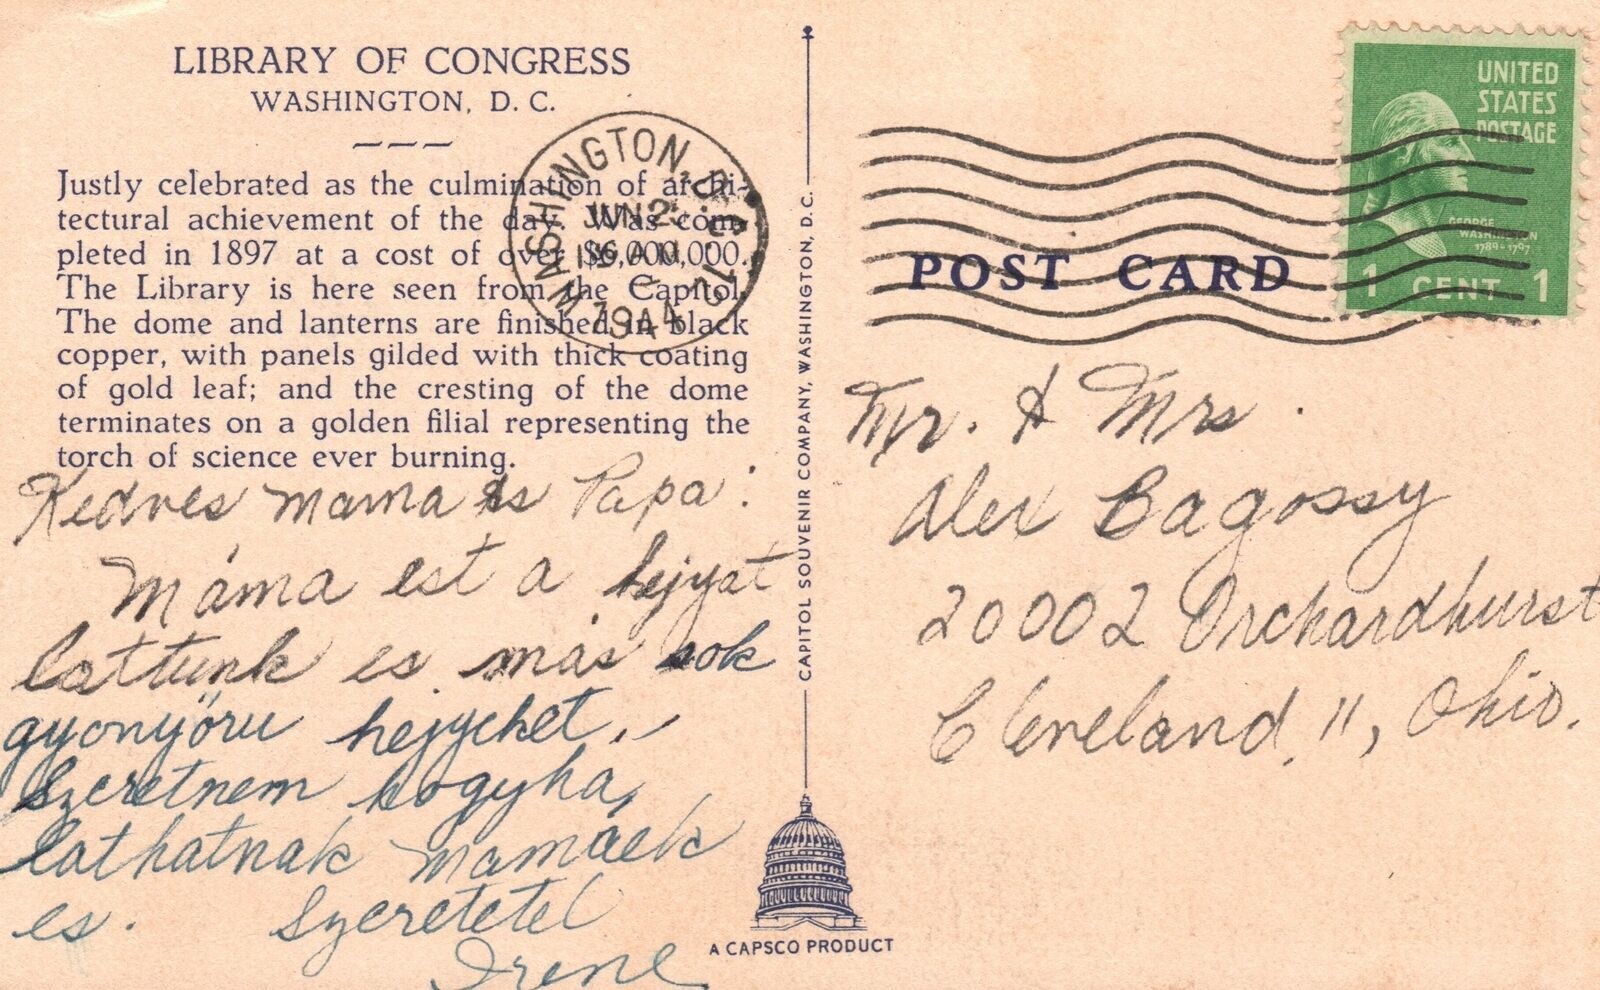 LIBRARY OF CONGRESS
WASHINGTON, D. C.
Justly celebrated as the culmination of archi-
tectural achievement of the day. Was com-
pleted in 1897 at a cost of over $6,000,000.
The Library is here seen from the Capitol.
The dome and lanterns are finished in black
copper, with panels gilded with thick coating
of gold leaf; and the cresting of the dome
terminates on a golden filial representing the
torch of science ever burning.
Kedves mama és Papa:
Máma est a hejyat
lattunk es más sok
gyonyöru hejyeket.
Szeretnem hogyha,
lathatnak mamáek
es. Szeretetel
Irene
WASHINGTON, D.C.
JUN 2
AM
1944
CAPITOL SOUVENIR COMPANY, WASHINGTON, D.C.
A CAPSCO PRODUCT
UNITED
STATES
POSTAGE
GEORGE
WASHINGTON
1789-1797
1 CENT 1
POST CARD
Mr. & Mrs.
Alex Bagossy
20002 Orchardhurst
Cleveland, 11, Ohio.